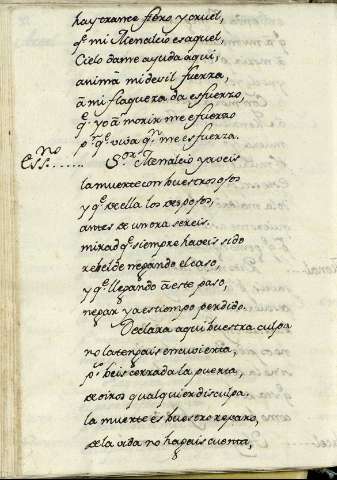 hay trance fiero y cruel,
q^e mi Menalcio es aquel,
Cielo dame ayuda aqui,
animã mi devil fuerza,
ã mi flaqueza da esfuerzo,
q^e yo ã morir me esfuerzo
p^r q^e viva q^n me esfuerza.
Ess^no...... S^or Menalcio ya veis
la muerte con buestros ojos
y q^e de ella los despojos,
antes de un ora sereis.
mirad q^e siempre haveis sido
rebelde negando el caso,
y q^e llegando ã este paso,
negar ya es tiempo perdido.
Declara aqui buestra culpa
no la tengais encuvierta,
p^s beis cerrada la puerta,
de otros qualquier disculpa.
la muerte es buestro reparo,
de la vida no hagais cuenta,